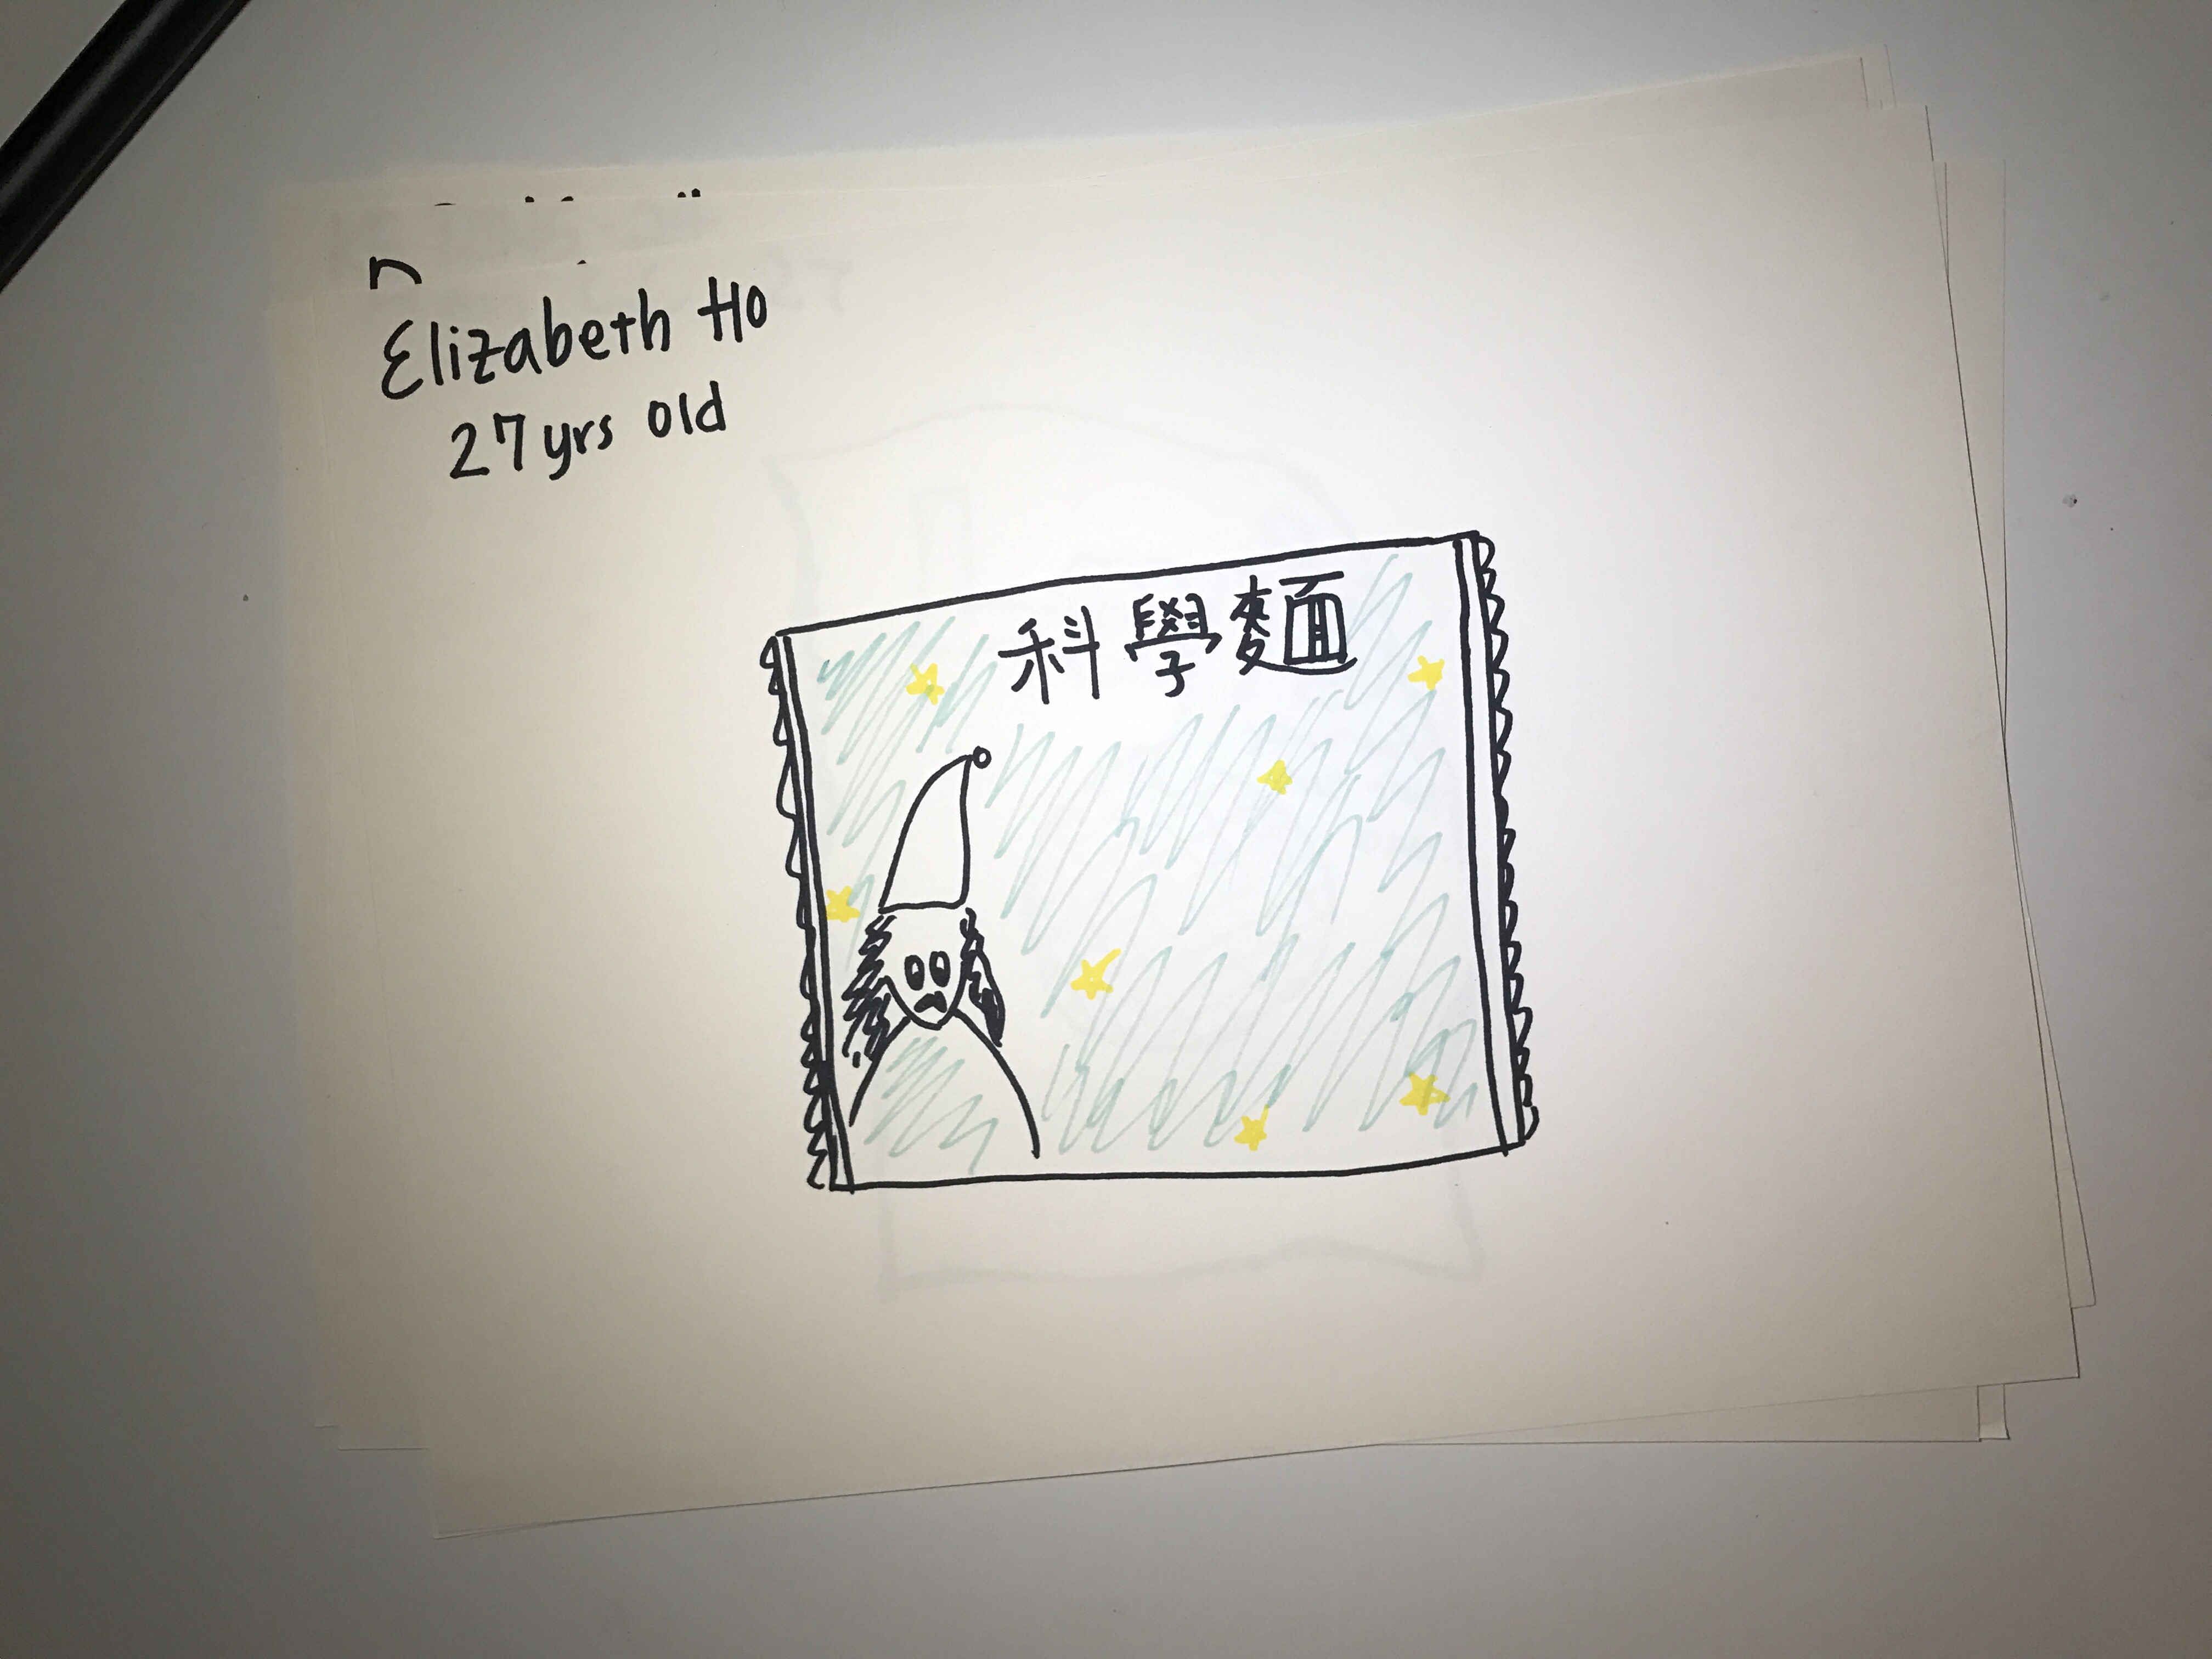 Elizabeth Ho
27 yrs old
科學麵